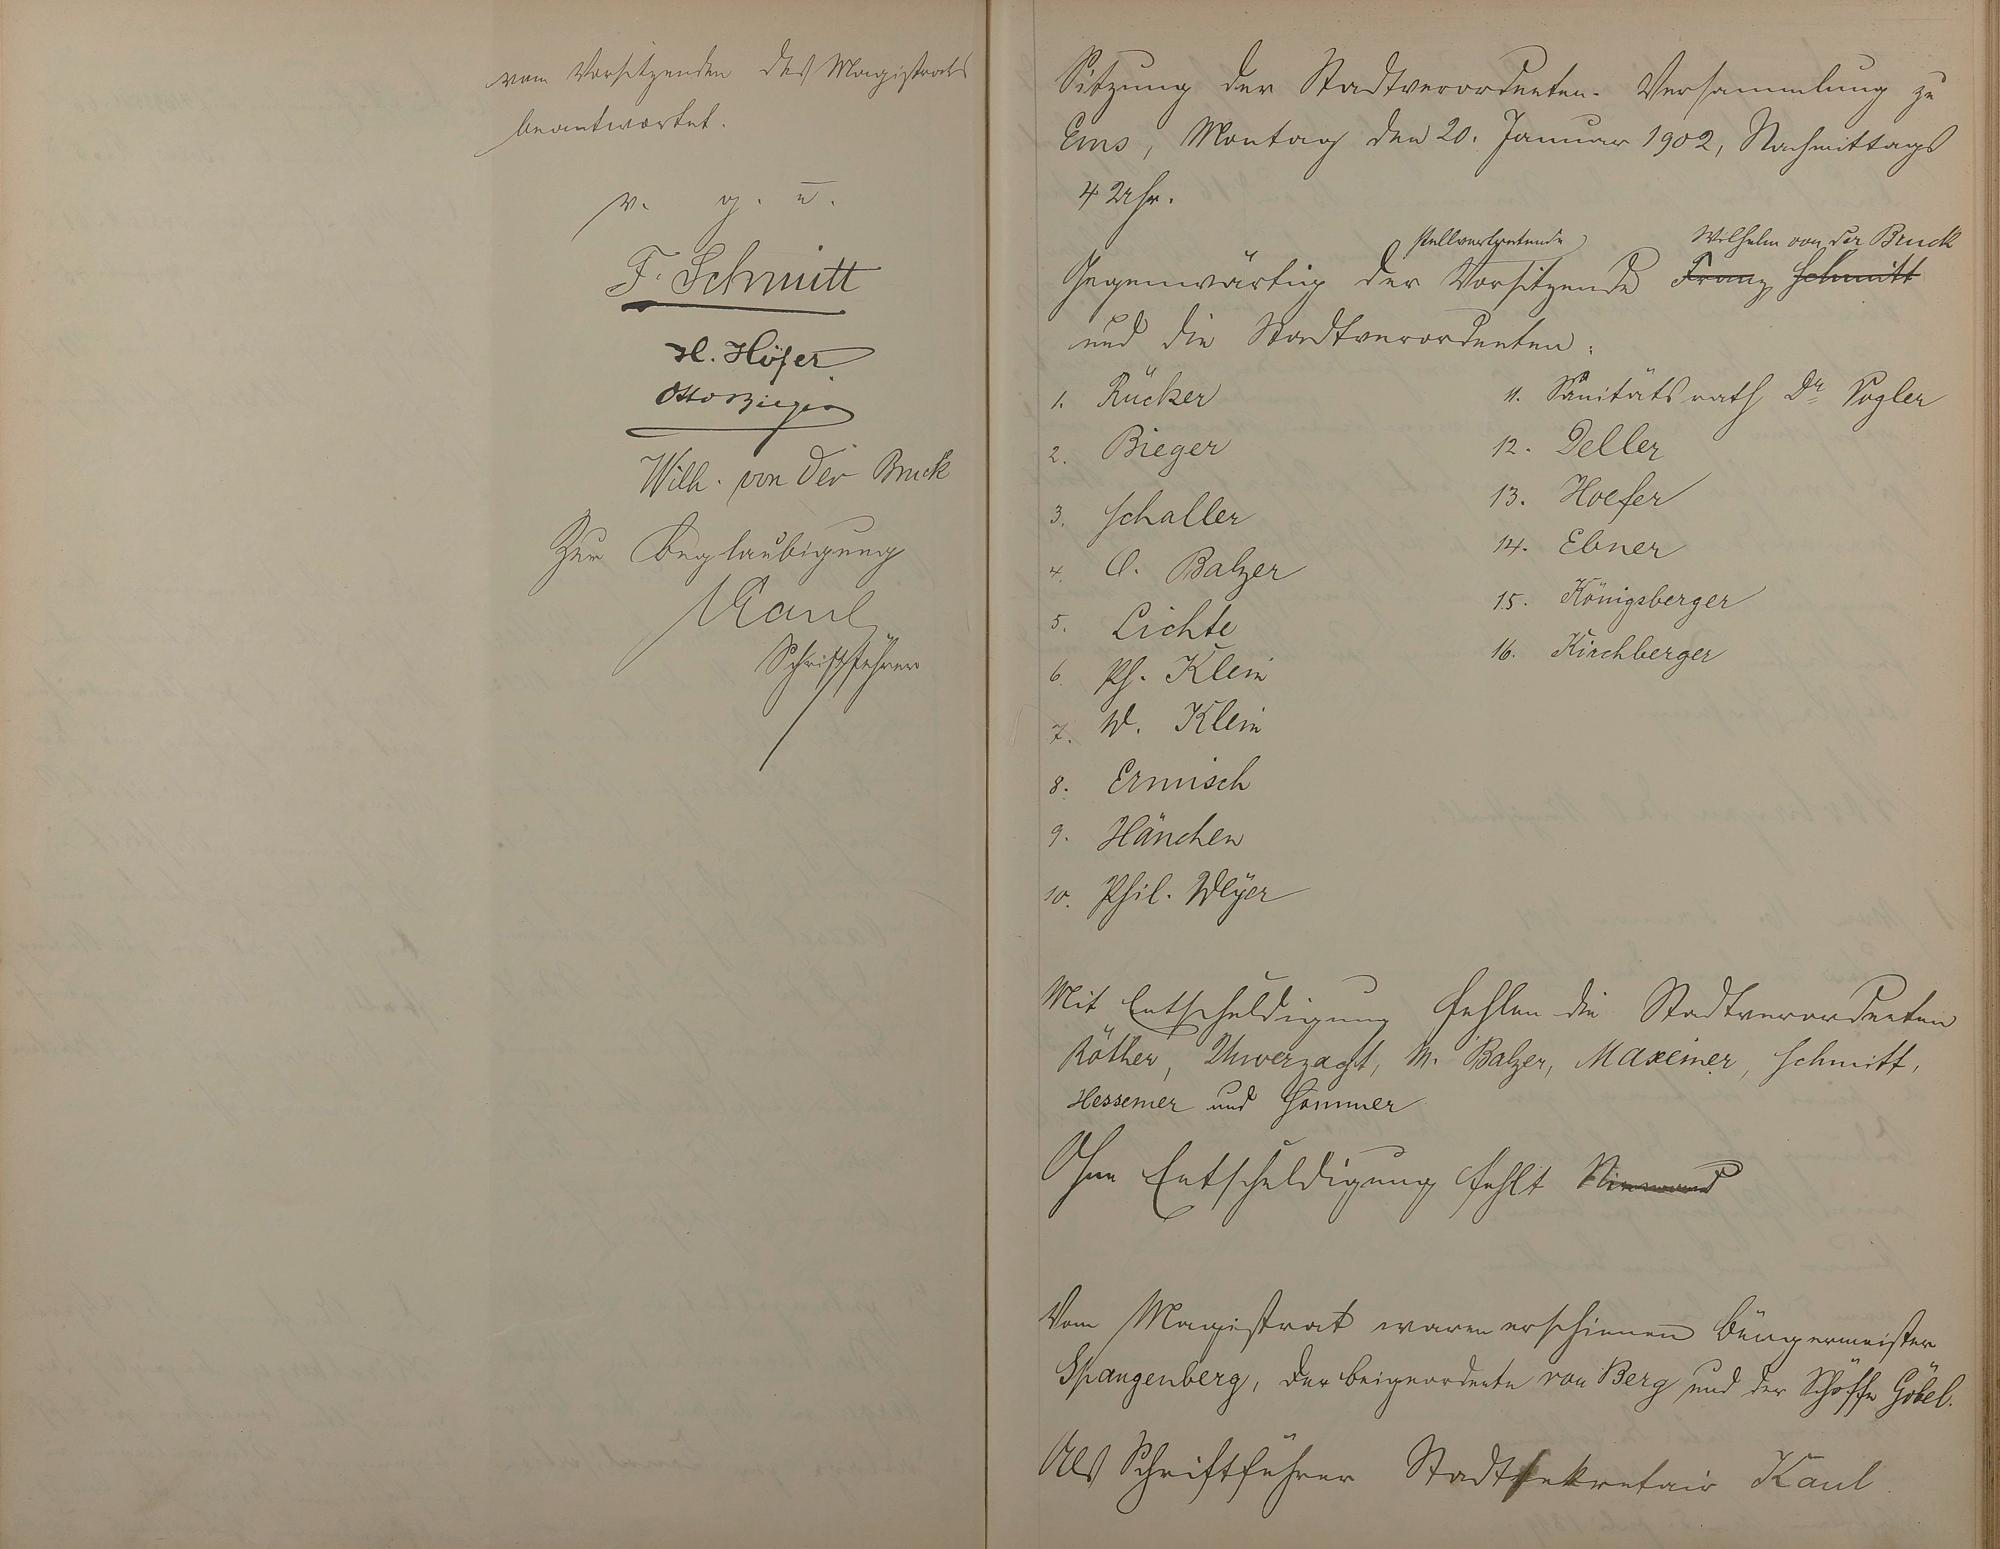 vom Vorsitzenden des Magistrats
beantwortet.
v. g. u.
F. Schmitt
H. Höfer
Otto Bieger
Wilh. von der Bruck
Zur Beglaubigung
Kaul
Schriftführer
Sitzung der Stadtverordneten-Versammlung zu
Ems, Montag den 20. Januar 1902, Nachmittags
4 Uhr.
stellvertretende Wilhelm von der Bruck
Gegenwärtig der Vorsitzende Franz Schmitt
und die Stadtverordneten:
1. Rücker
2. Bieger
3. Schaller
4. O. Balzer
5. Lichte
6. Ph. Klein
7. W. Klein
8. Ermisch
9. Hänchen
10. Phil. Weyer
11. Sanitätsrath Dr. Vogler
12. Deller
13. Hoefer
14. Ebner
15. Königsberger
16. Kirchberger
Mit Entschuldigung fehlen die Stadtverordneten
Röther, Unverzagt, M. Balzer, Maxeiner, Schmitt,
Hessemer und Sommer
Ohne Entschuldigung fehlt Niemand
Vom Magistrat waren erschienen Bürgermeister
Spangenberg, der Beigeordnete von Berg und der Schöffe Göbel.
Als Schriftführer Stadtsekretair Kaul